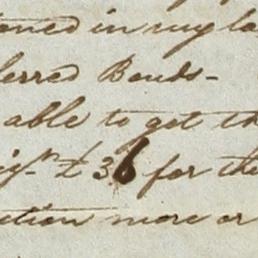 ioned in my la
ferred Bonds-
able to get th
£36 for the
ction more or